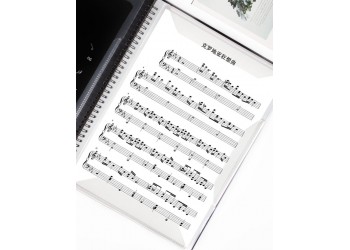 克罗地亚狂想曲